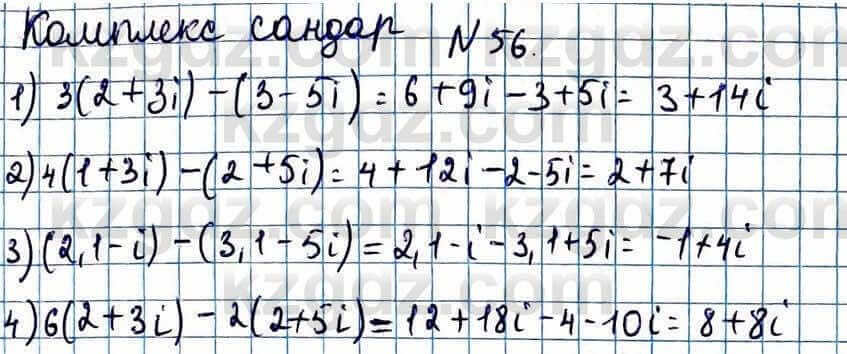 Комплекс сандар N 56.
1) 3(2+3i) - (3-5i) = 6+9i-3+5i = 3+14i
2) 4(1+3i) - (2+5i) = 4+12i-2-5i = 2+7i
3) (2,1-i) - (3,1-5i) = 2,1-i-3,1+5i = -1+4i
4) 6(2+3i) - 2(2+5i) = 12+18i-4-10i = 8+8i
kzgdz.com